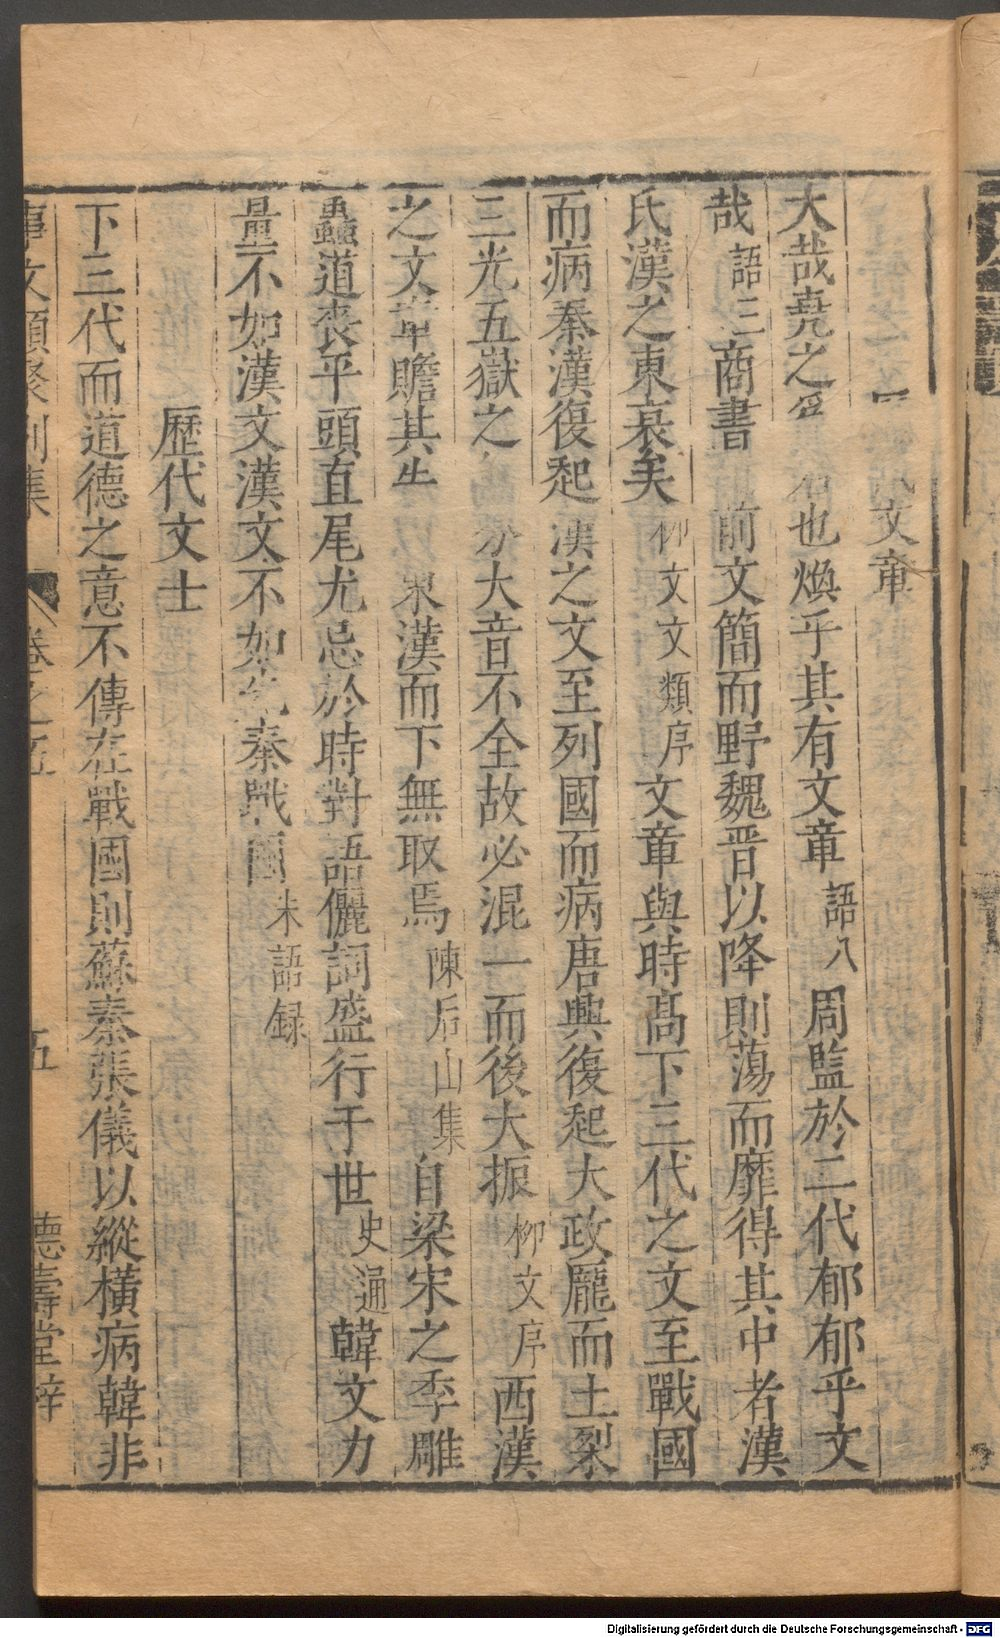 文章
大哉堯之為君也煥乎其有文章語八周監於二代郁郁乎文
哉語三商書前文簡而野魏晋以降則蕩而靡得其中者漢
氏漢之東衰矣柳文文類序文章與時髙下三代之文至戰國
而病秦漢復起漢之文至列國而病唐興復起大政龎而土裂
三光五嶽之分大音不全故必混一而後大振柳文序西漢
之文章贍其生東漢而下無取焉陳后山集自梁宋之季雕
蟲道喪平頭直尾尤忌於時對語儷詞盛行于世史通韓文力
量不如漢文漢文不如先秦戰國朱語録
歷代文士
下三代而道德之意不傳在戰國則蘇秦張儀以縱橫病韓非
事文類聚別集 卷之五 五 德壽堂梓
Digitalisierung gefördert durch die Deutsche Forschungsgemeinschaft - DFG